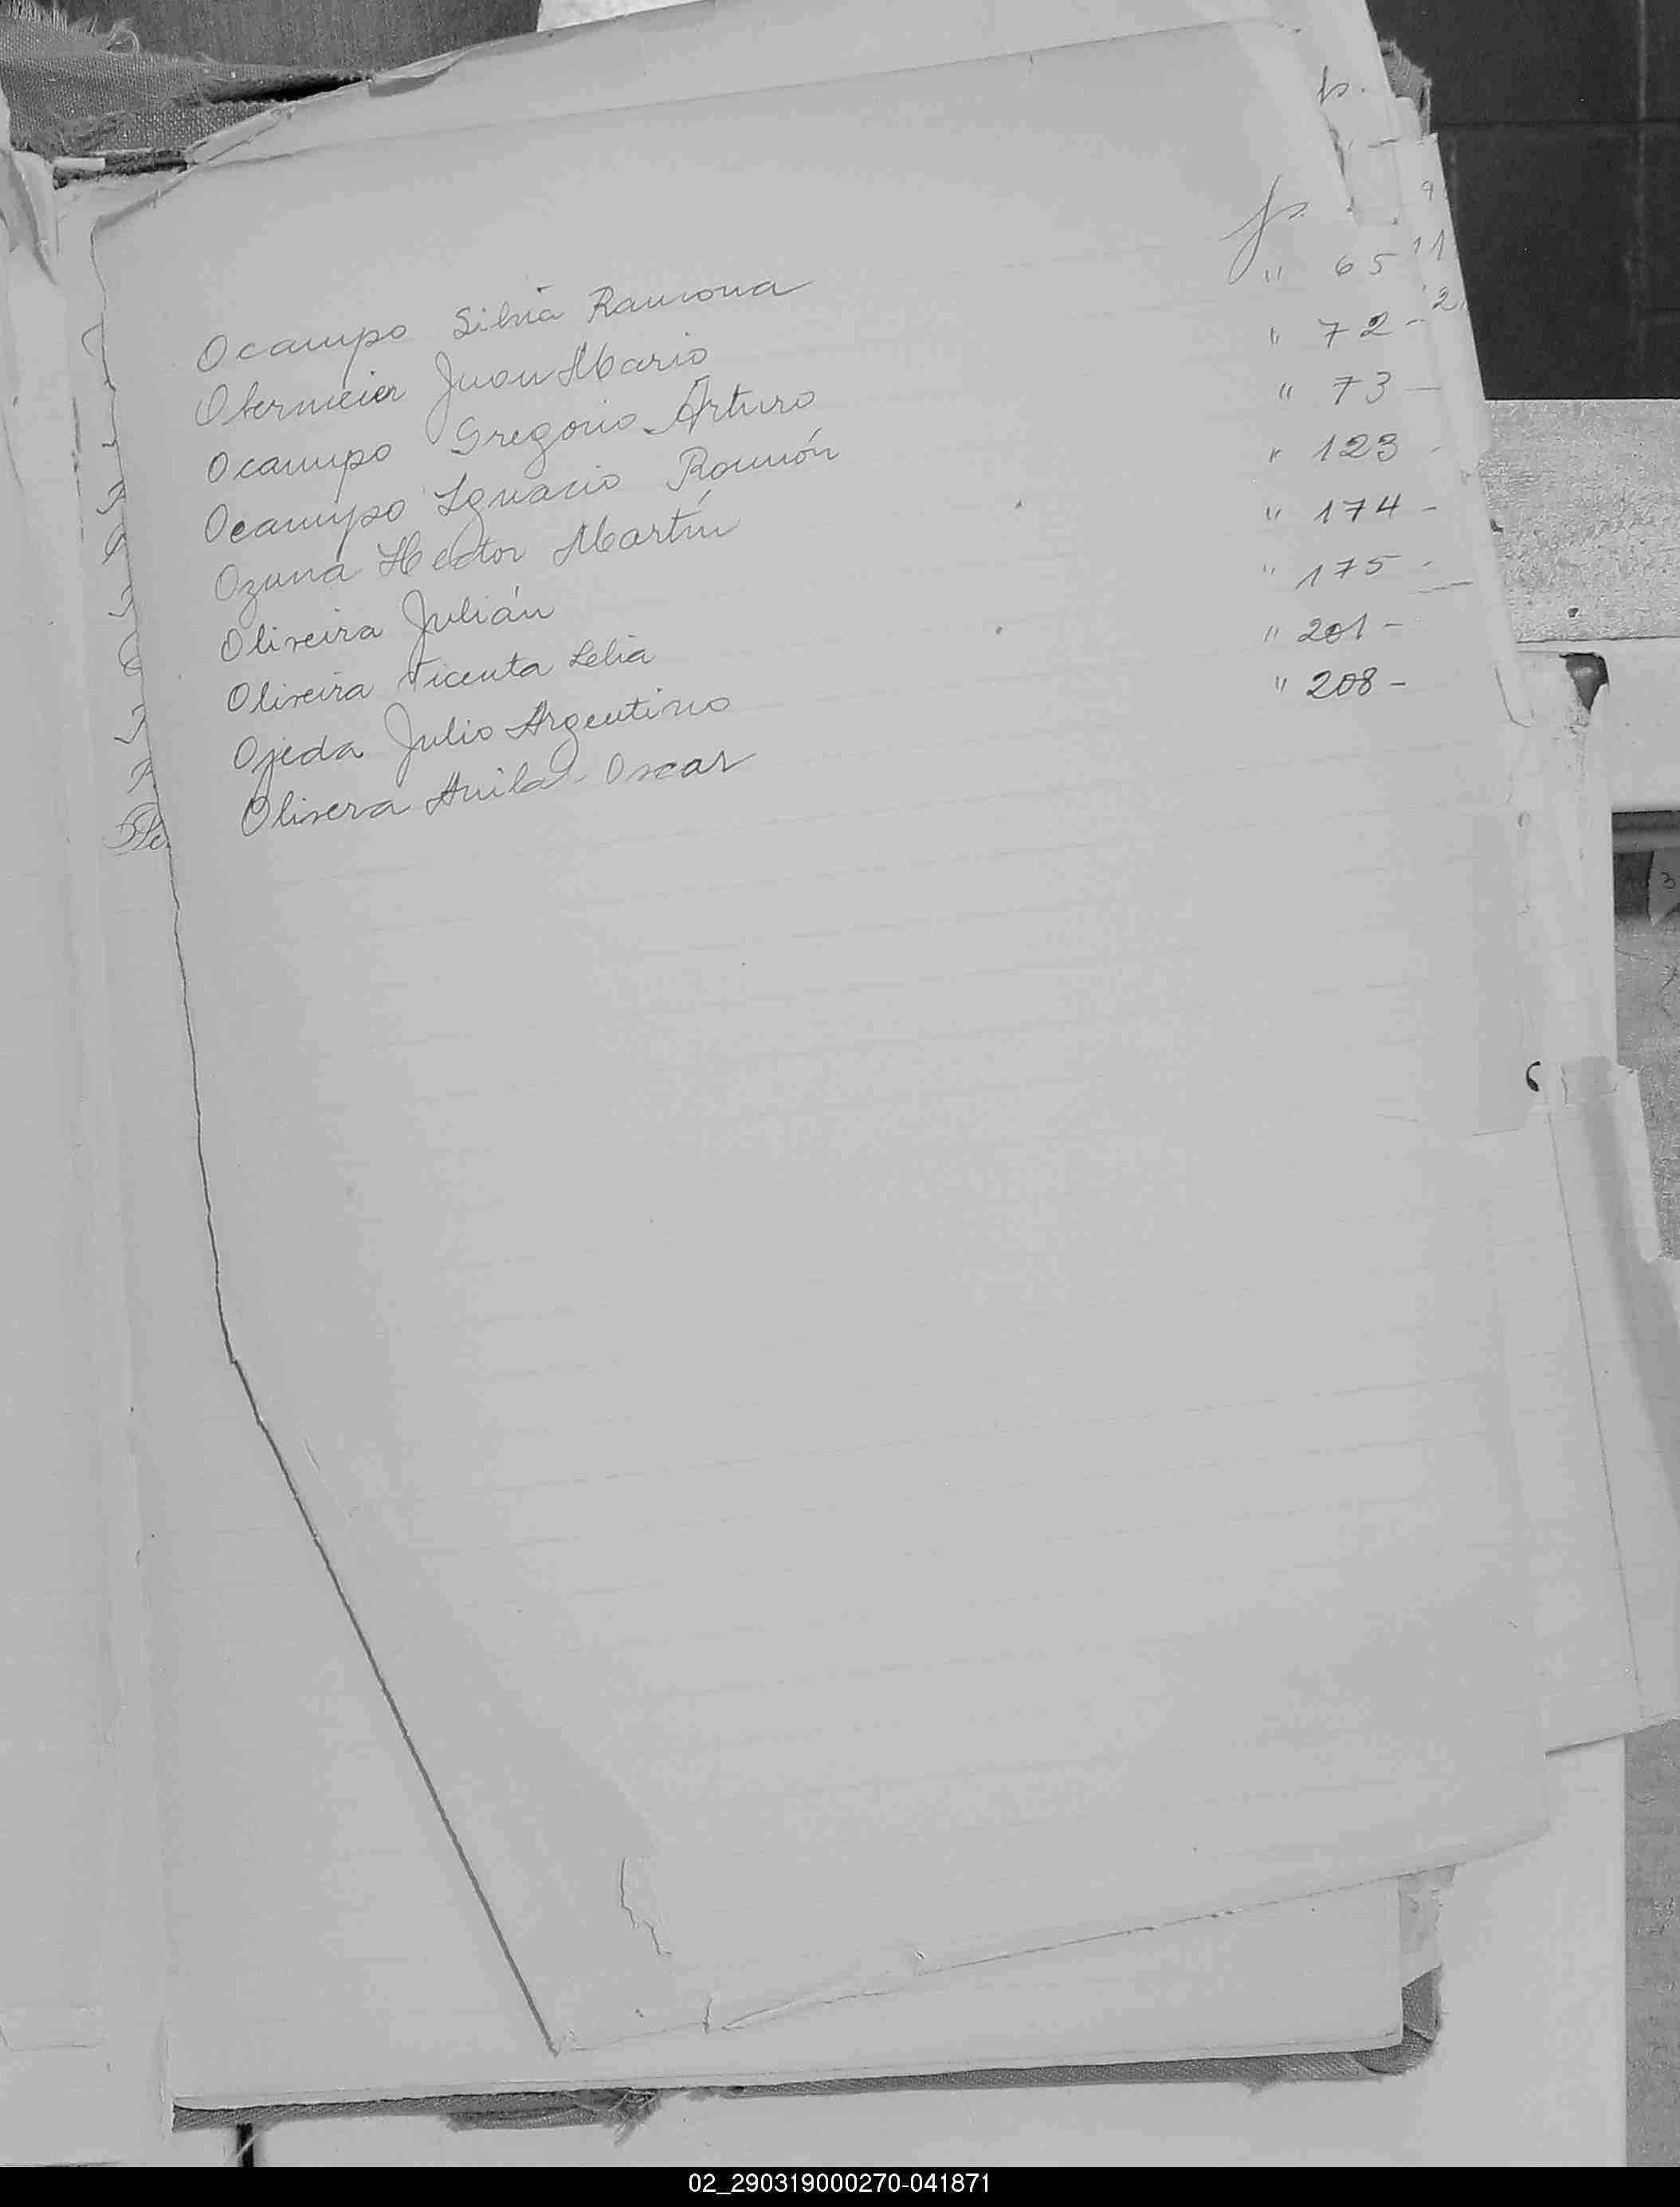 Ocampo Silvia Ramona f.
Obermeier Juan Mario " 65
Ocampo Gregorio Arturo " 72 -
Ocampo Ignacio Ramón " 73 -
Ozuna Hector Martín " 123 -
Oliveira Julián " 174 -
Oliveira Vicenta Lelia " 175 -
Ojeda Julio Argentino " 201 -
Olivera Avila Oscar " 208 -
02_290319000270-041871